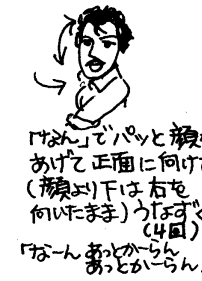 「なん」でパッと顔を
あげて正面に向け
(顔より下は右を
向いたまま)うなずく
(4回)
「なーんあっとかーらん
あっとかーらん